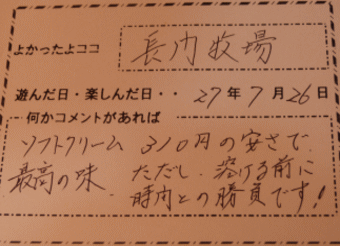 よかったよココ 長内牧場
遊んだ日・楽しんだ日・・ 27年7月26日
何かコメントがあれば
ソフトクリーム 310円の安さで
最高の味. ただし、溶ける前に
時間との勝負です!